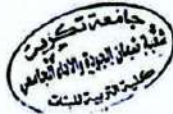 جامعة تكريت
شعبة ضمان الجودة والأداء الجامعي
كلية تربية للبنات